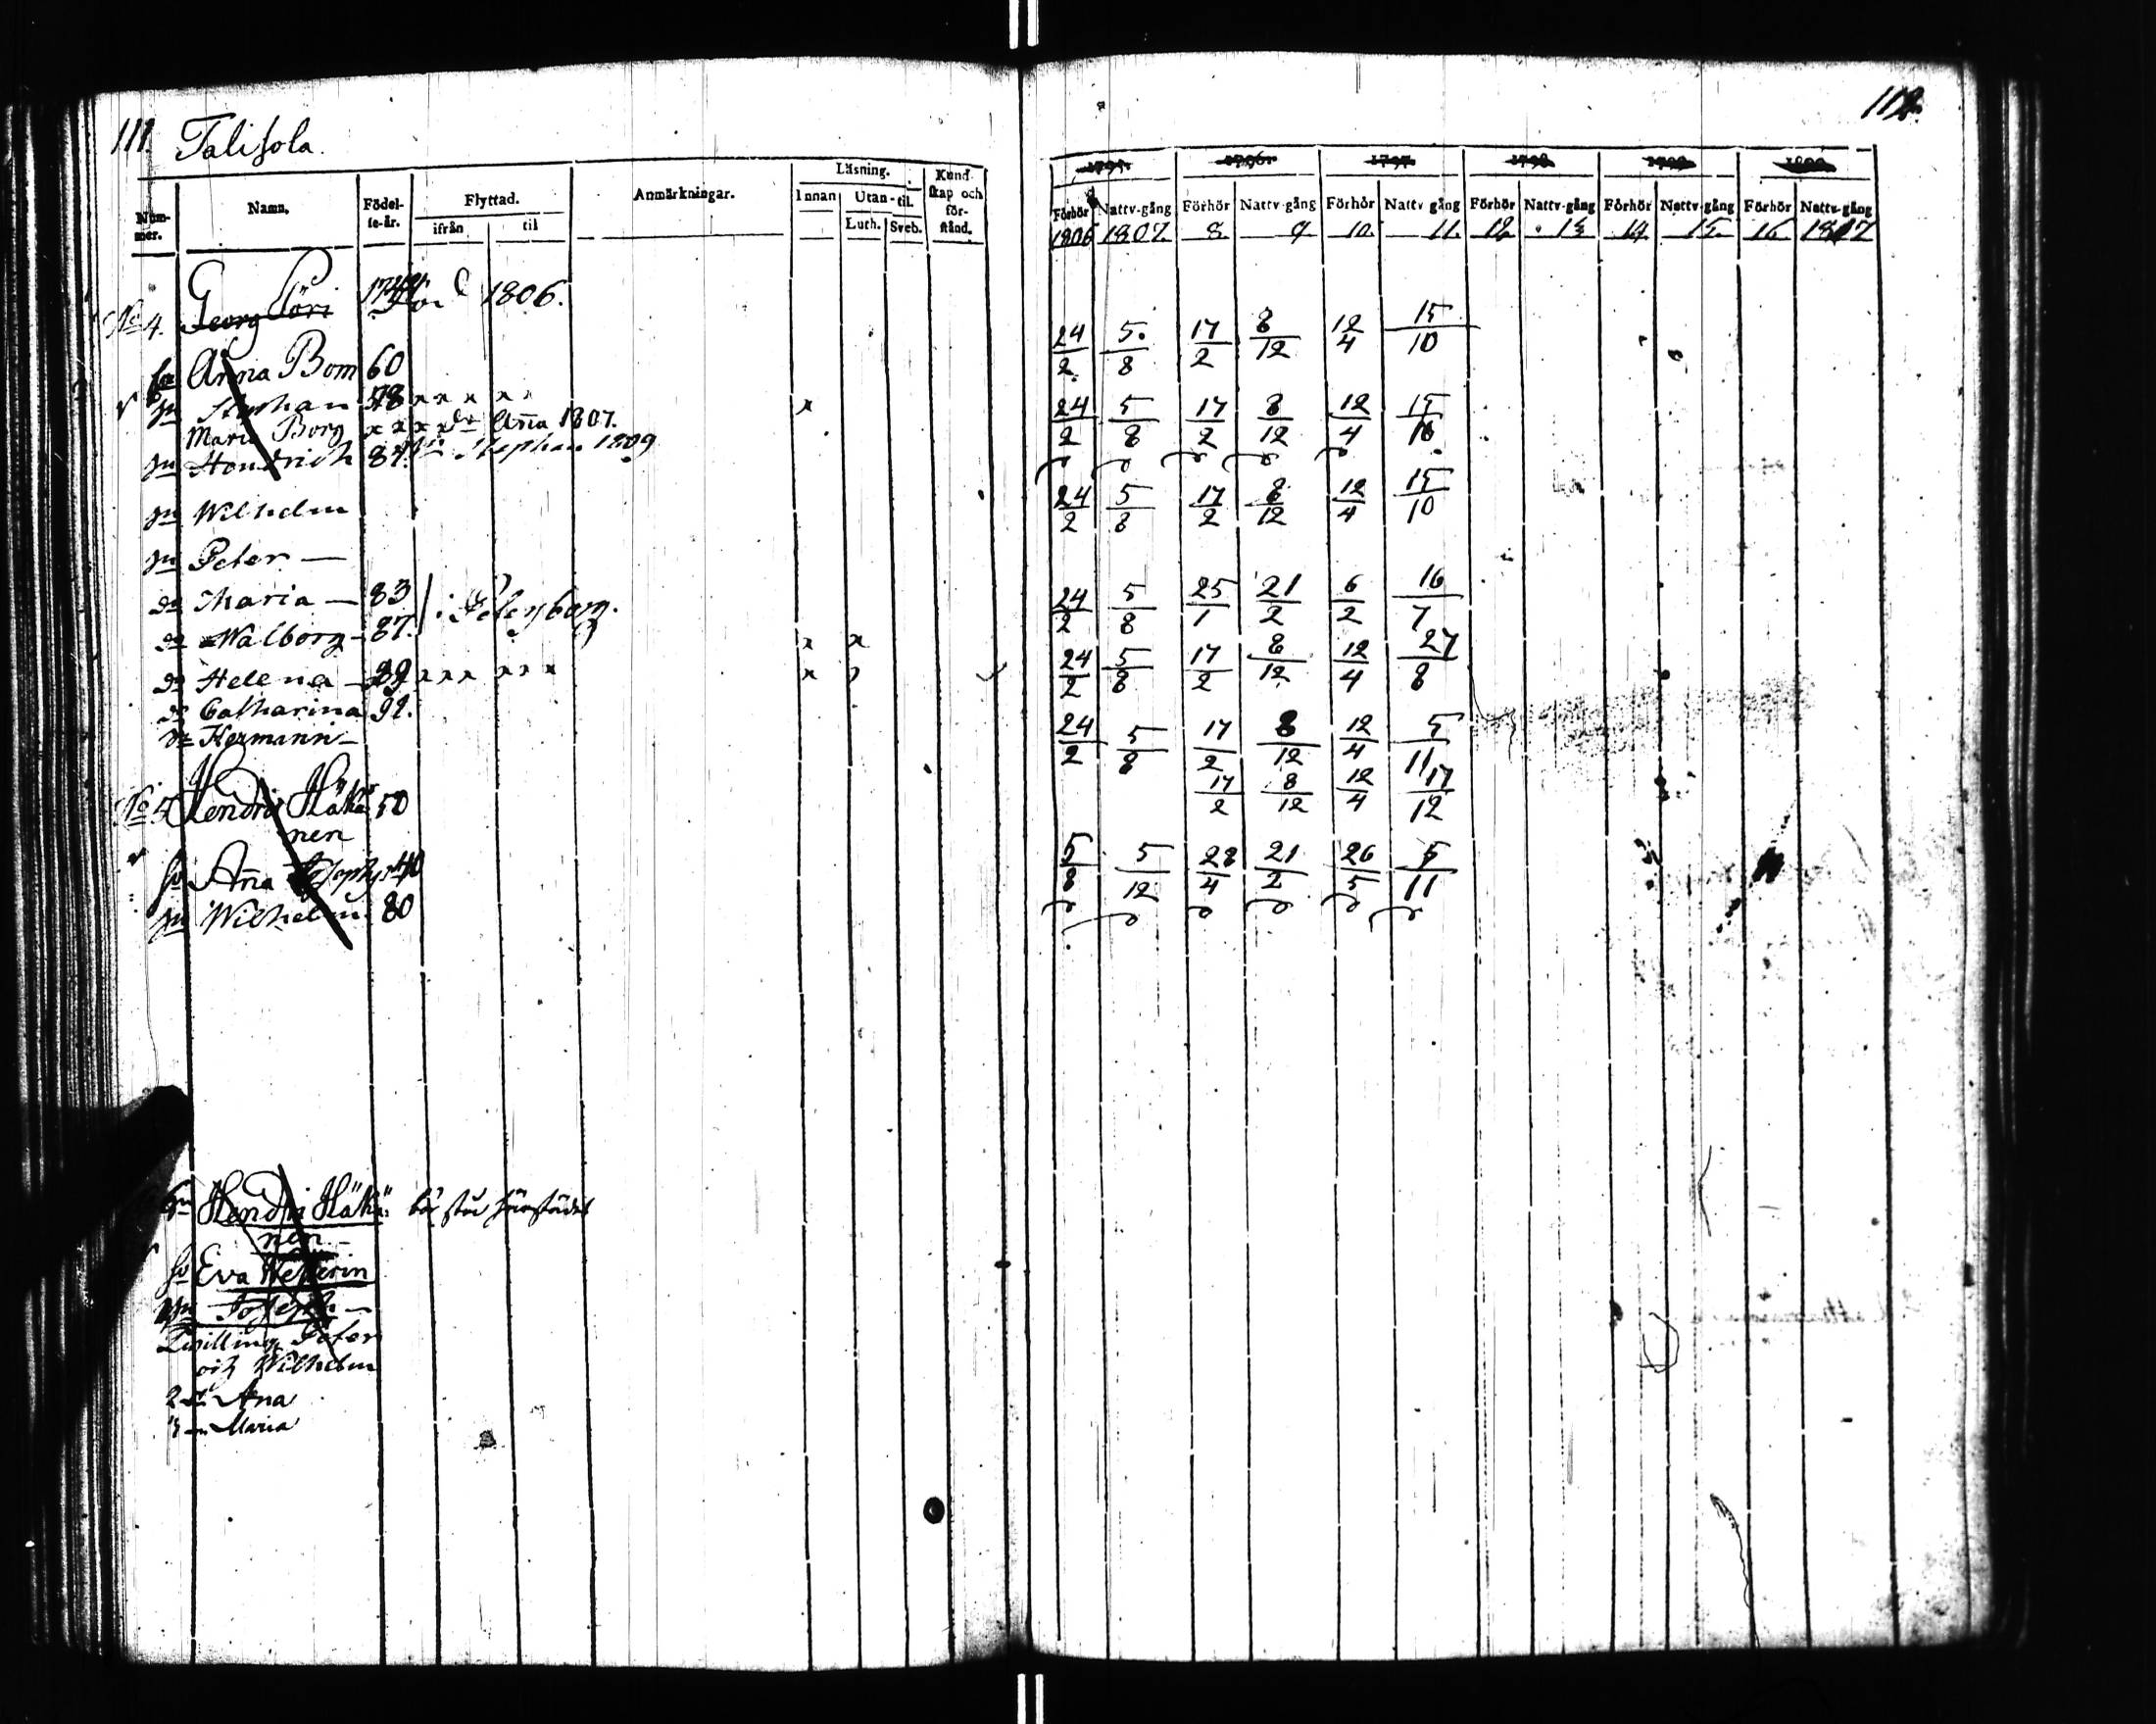 111. Talisola.
Num-mer. Namn. Födel-se-år. Flyttad. ifrån til Anmärkningar. Läsning. Innan Utan-til. Luth. Sveb. Kund-skap och för-stånd.
No 4. Georg Pöri 1806.
Anna Bom 60
sn Stephan 78 x x x x x
Maria Borg x x x x dr Aña 1807.
sn Hendrich 81. Stephan 1809
sn Wilhelm
sn Peter —
dr Maria — 83
dr Walborg — 87. x x
dr Helena — 89 x x x x x x x
dr Catharina 92.
Hermann —
No 5 Hendri Häkä 50
nen
hu Aña Josephs 40
sn Wilhelm 80
sn Hendri Häkä
nen
hu Eva
sn Joseph —
Twilling Peter
och Wilhelm
2 dr Ana
3 Maria
112.
1795. 1796. 1797. 1798. 1799. 1800.
Förhör Nattv-gång Förhör Nattv-gång Förhör Nattv gång Förhör Nattv-gång Förhör Nattv-gång Förhör Nattv-gång
1806 1807. 8. 9 10. 11. 12. 13 14 15. 16 1817
24/2 5/8 17/2 8/12 12/4 15/10
24/2 5/8 17/2 8/12 12/4 15/10
24/2 5/8 17/2 8/12 12/4 15/10
24/2 5/8 25/1 21/2 6/2 16/7
24/2 5/8 17/2 8/12 12/4 27/8
24/2 5/8 17/2 8/12 12/4 5/11
17/2 8/12 12/4 17/12
5/8 5/12 28/4 21/2 26/5 5/11